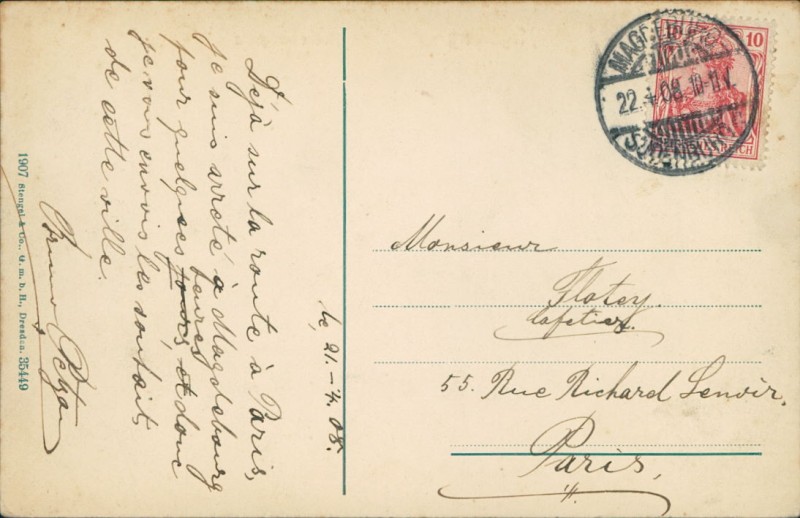 le, 21.-4. 08.
Déjà sur la route à Paris,
je suis arreté a Magdebourg
heures
pour quelques jours, et donc
je vous envois les souhaits
de cette ville.
Bruno
1907 Stengel & Co., G. m. b. H., Dresden. 35449
MAGDEBURG
22.4.08.10-11V.
10
REICH
Monsieur
Flotey.
Cafetier.
55. Rue Richard Lenoir,
Paris,